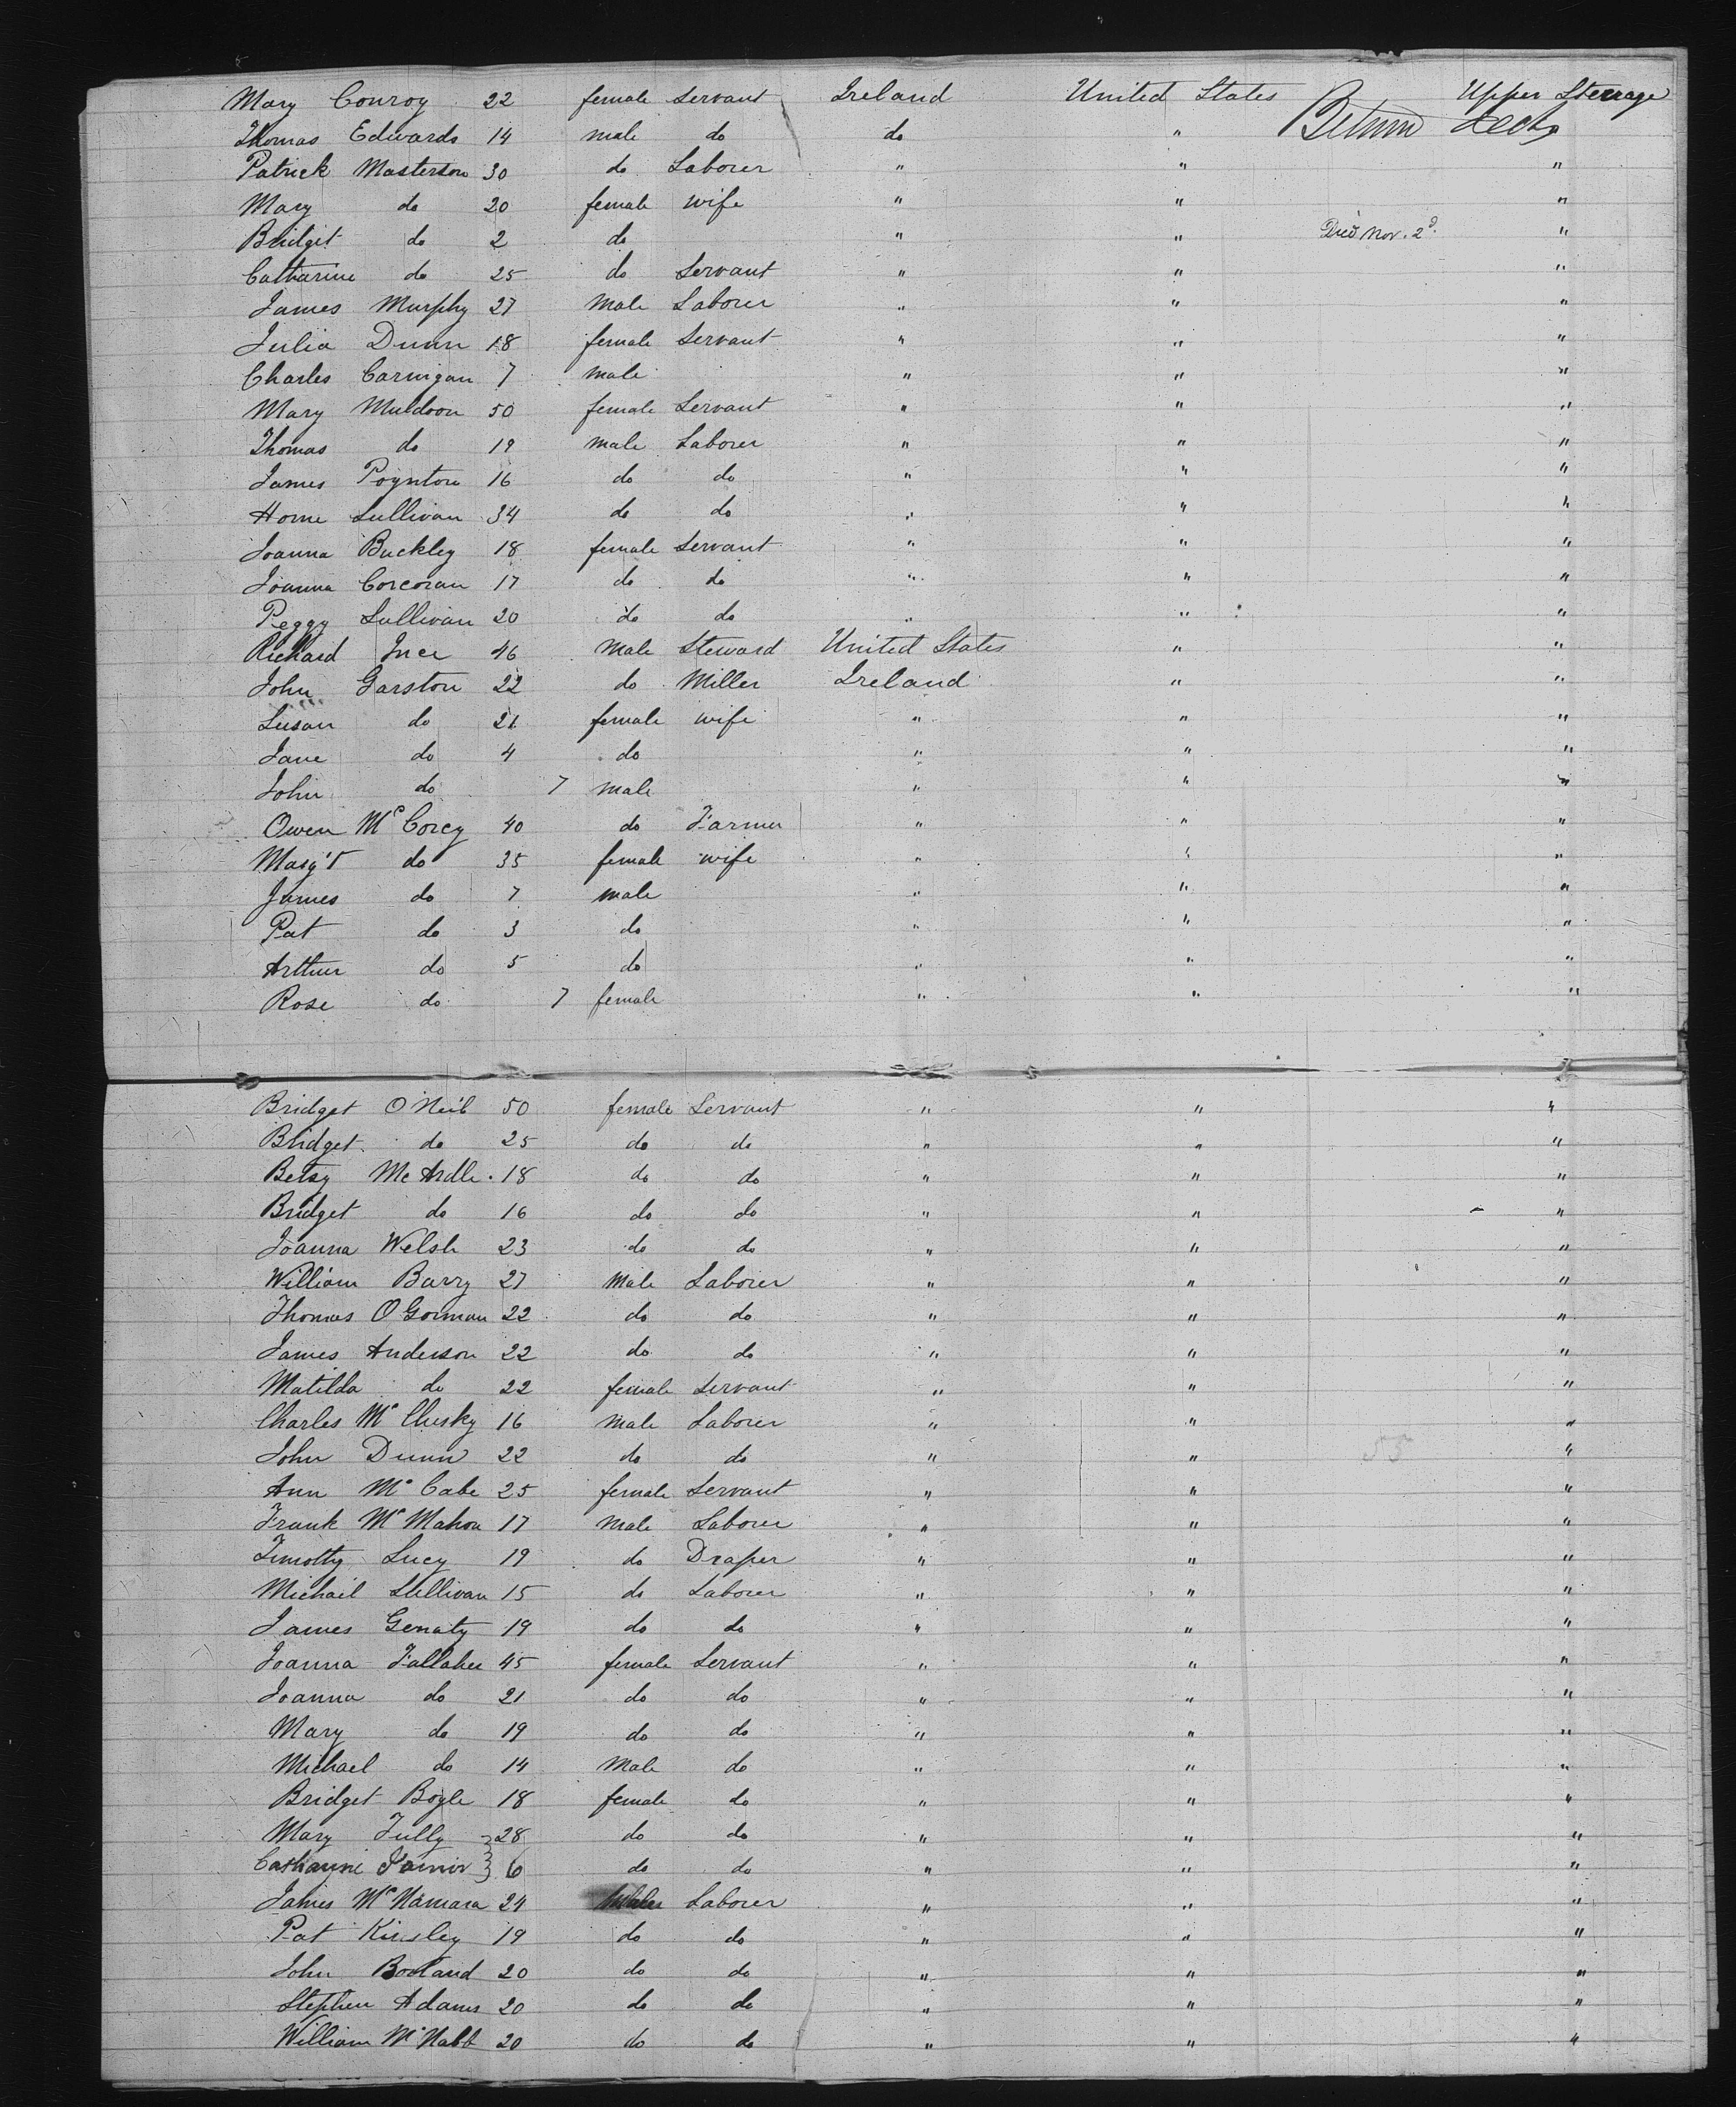 Mary Conroy 22 female Servant Ireland United States Upper Steerage
Thomas Edwards 14 male do do " Between Decks
Patrick Masterson 30 do Laborer " " "
Mary do 20 female wife " " "
Bridget do 2 do " " Died Nov. 2d. "
Catharine do 25 do Servant " " "
James Murphy 27 male Laborer " " "
Julia Dunn 18 female Servant " " "
Charles Carnigan 7 male " " "
Mary Muldoon 50 female Servant " " "
Thomas do 19 male Laborer " " "
James Poynton 16 do do " " "
Home Sullivan 34 do do " " "
Joanna Buckley 18 female Servant " " "
Joanna Corcoran 17 do do " " "
Peggy Sullivan 20 do do " " "
Richard Incr 46 male Steward United States " "
John Garston 22 do Miller Ireland " "
Susan do 21 female wife " " "
Jane do 4 do " " "
John do 7 male " " "
Owen Mc Corey 40 do Farmer " " "
Marg't do 35 female wife " " "
James do 7 male " " "
Pat do 3 do " " "
Arthur do 5 do " " "
Rose do 7 female " " "
Bridget O'Neil 50 female Servant " " "
Bridget do 25 do do " " "
Betsy Mc Ardle 18 do do " " "
Bridget do 16 do do " " "
Joanna Welsh 23 do do " " "
William Barry 27 male Laborer " " "
Thomas O'Gorman 22 do do " " "
James Anderson 22 do do " " "
Matilda do 22 female Servant " " "
Charles Mc Clusky 16 male Laborer " " "
John Dunn 22 do do " " 55 "
Ann Mc Cabe 25 female Servant " " "
Frank Mc Mahon 17 male Laborer " " "
Timothy Lucy 19 do Draper " " "
Michael Sullivan 15 do Laborer " " "
James Genaty 19 do do " " "
Joanna Fallahee 45 female Servant " " "
Joanna do 21 do do " " "
Mary do 19 do do " " "
Michael do 14 male do " " "
Bridget Bogle 18 female do " " "
Mary Tully 28 do do " " "
Catharine 6 do do " " "
James Mc Namara 24 male Laborer " " "
Pat Kinsley 19 do do " " "
John Booland 20 do do " " "
Stephen Adams 20 do do " " "
William Mc Nabb 20 do do " " "